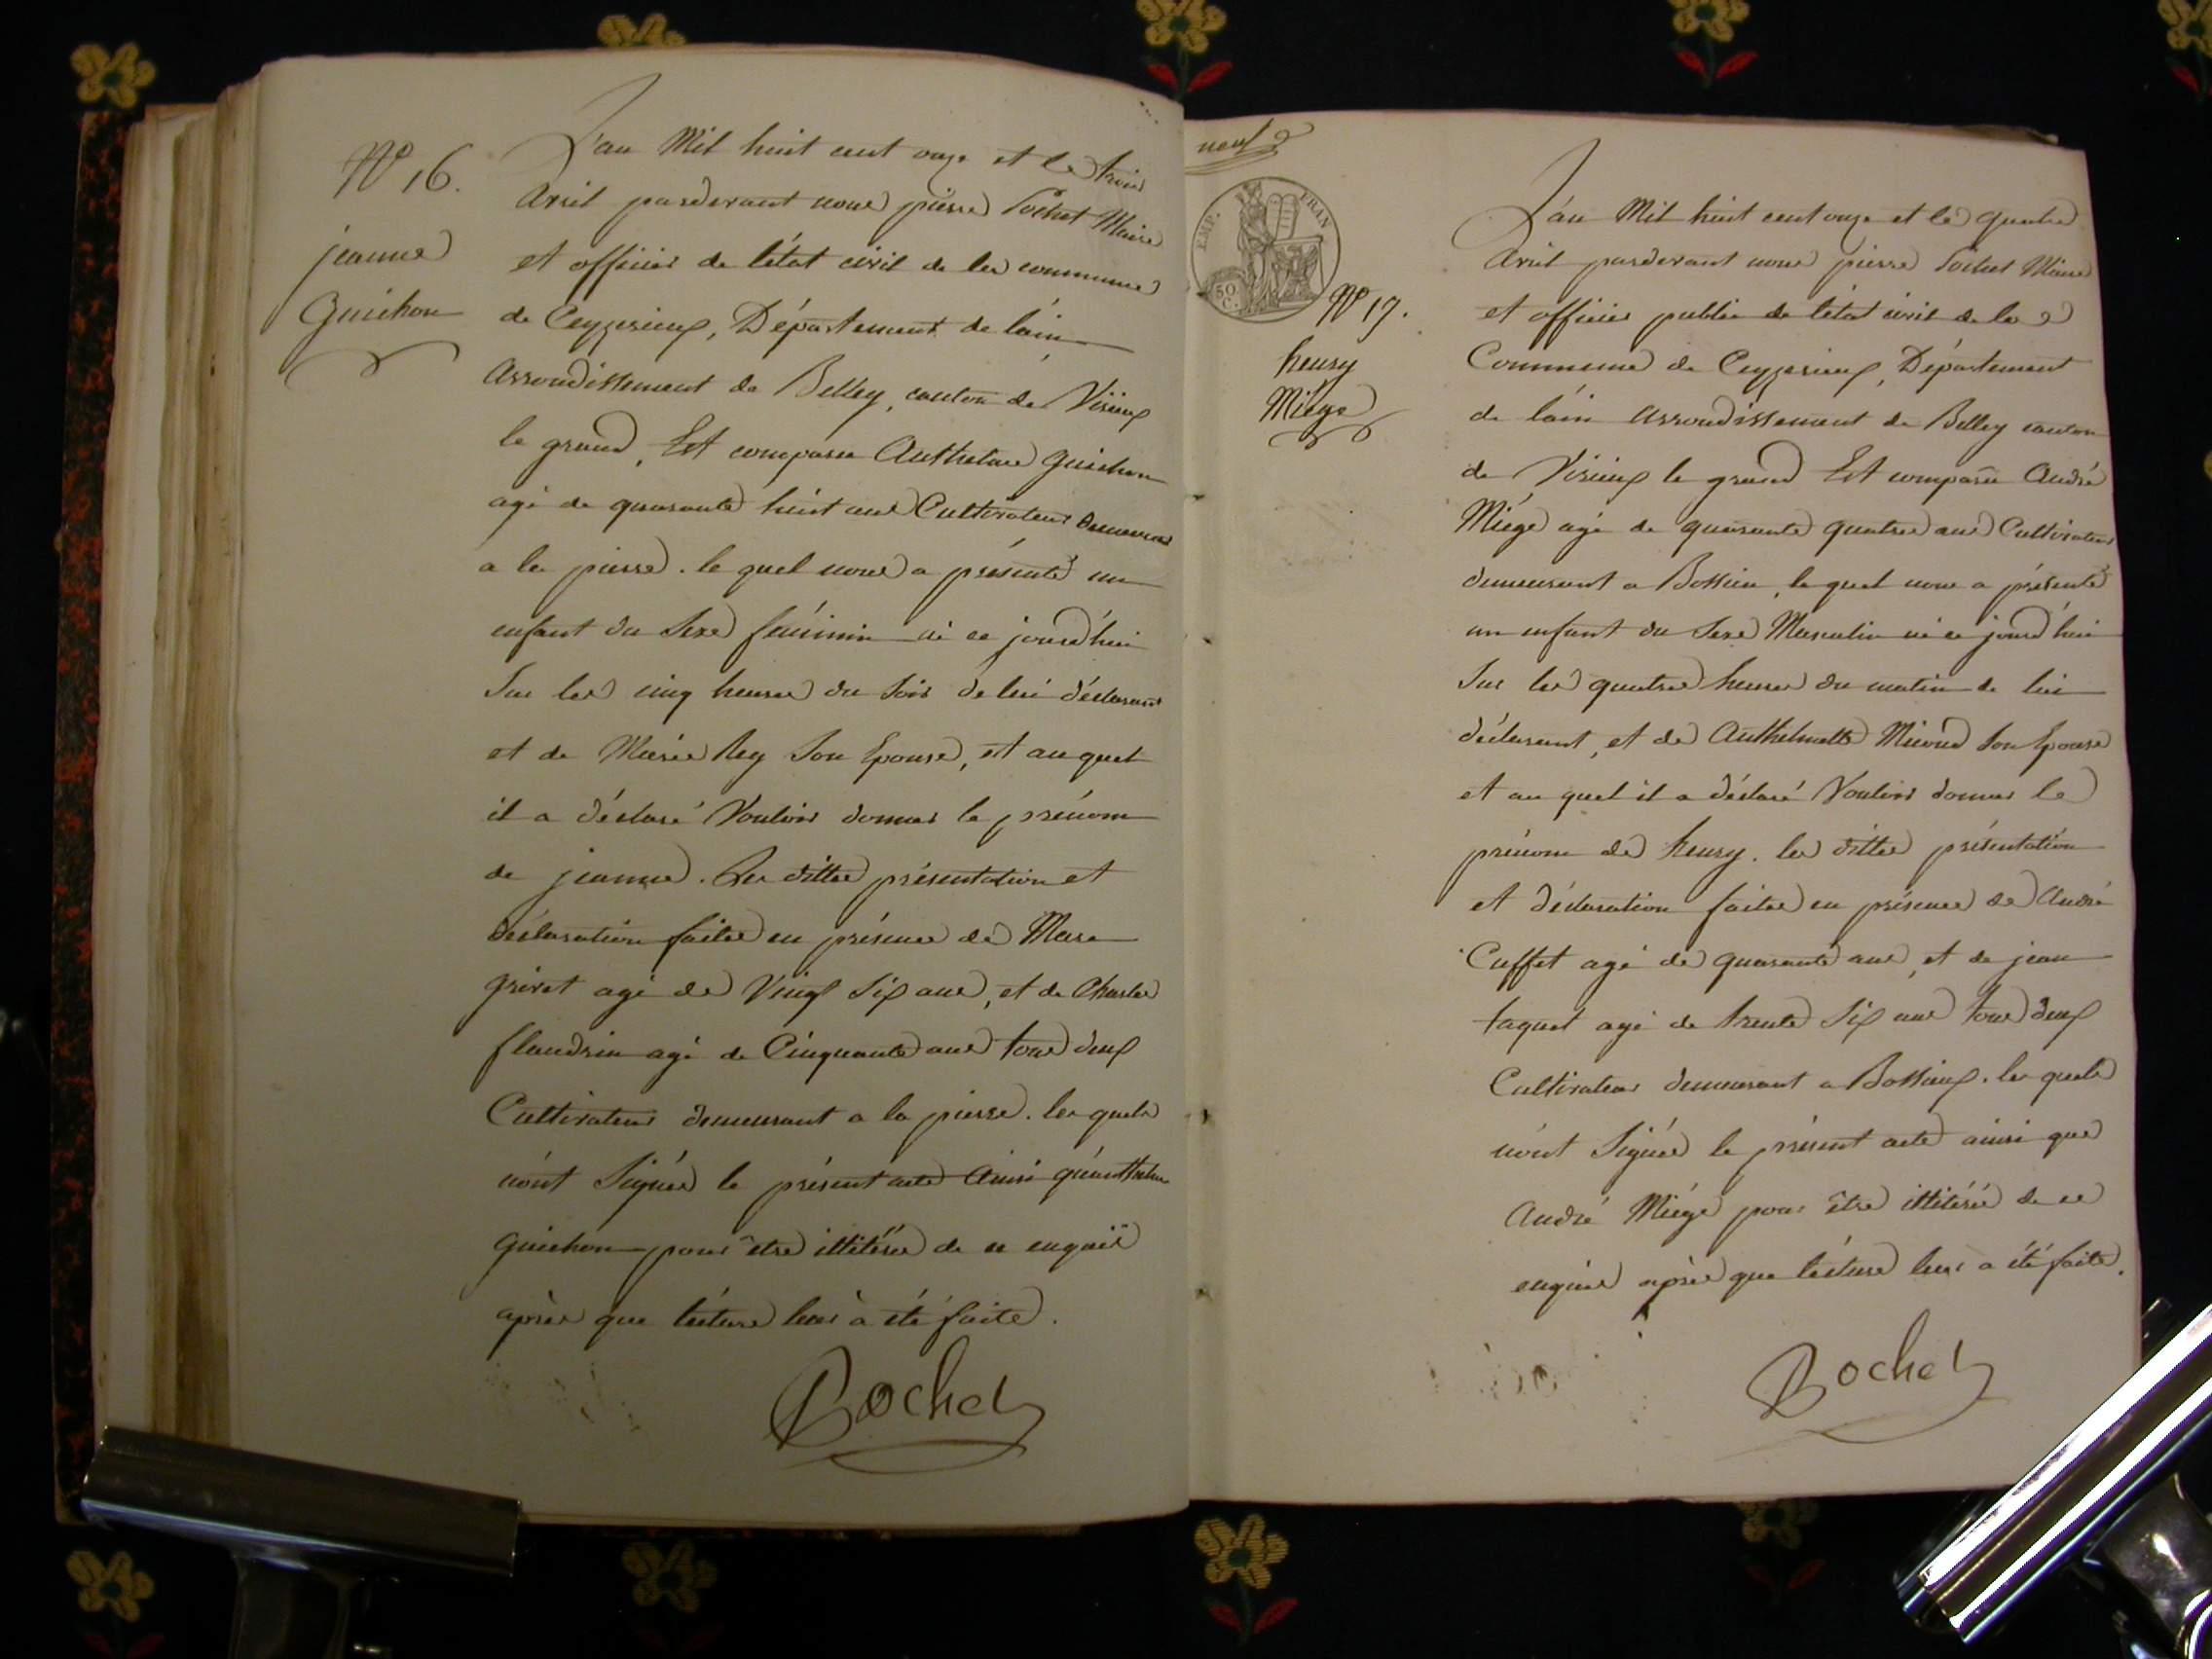 N° 16.
jeanne
Guichon
L'an Mil huit cent onze et le trois
Avril pardevant nous pierre Pochet Maire
et officier de l'état civil de la commune
de Ceyzerieux, Département de l'ain
Arrondissement de Belley, canton de Virieux
le grand, Est comparu Anthelme Guichon
agé de quarante huit ans Cultivateur Demeurant
a la pierre. le quel nous a présenté un
enfant du Sexe féminin né ce jourd'hui
Sur les cinq heures du Soir de lui déclarant
et de Marie Rey Son Epouse, et au quel
il a déclaré Vouloir donner le prénom
de jeanne. Les dittes présentation et
déclaration faites en présence de Marc
grivet agé de Vingt Six ans, et de Charles
flandrin agé de Cinquante ans tous deux
Cultivateurs demeurant a la pierre. les quels
n'ont Signés le présent acte Ainsi qu'anthelme
Guichon pour être illitérés de ce enquis
après que lécture leur à été faite.
Bochet
neuf
EMP. FRAN
50 C.
N° 17.
henry
Miége
L'an Mil huit cent onze et le quatre
Avril pardevant nous pierre Pochet Maire
et officier public de l'état civil de la
Commune de Ceyzerieux, Département
de l'ain Arrondissement de Belley canton
de Virieux le grand Est comparu André
Miége agé de quarante quatre ans Cultivateur
demeurant a Bossieu, le quel nous a présenté
un enfant du Sexe Masculin né ce jourd'hui
Sur les quatres heures du matin de lui
déclarant, et de Anthelmette Micoud Son Epouse
et au quel il a déclaré Vouloir donner le
prénom de henry. les dittes présentation
et déclaration faites en présence de André
Cuffet agé de quarante ans, et de jean
taquet agé de trente Six ans tous deux
Cultivateurs demeurant a Bossieux. les quels
n'ont Signés le présent acte ainsi que
André Miége pour être illitérés de ce
enquis après que lécture leur a été faite.
Bochet